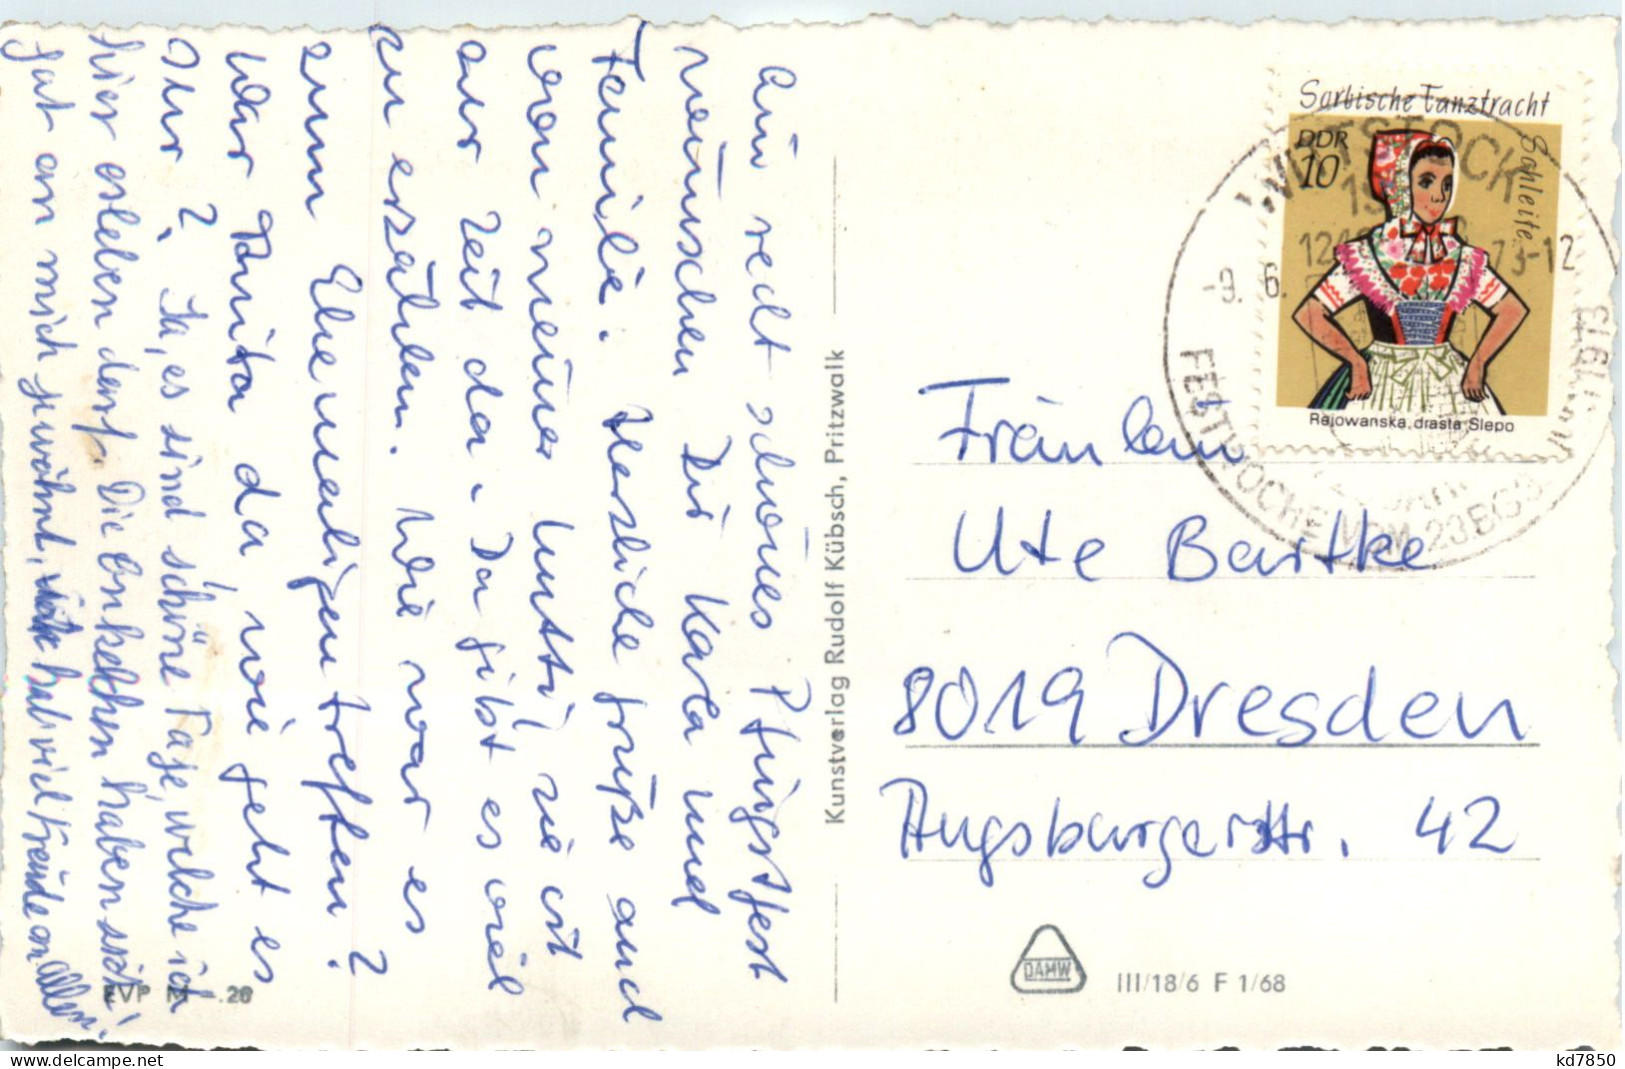 Ein recht schönes Pfingstfest
wünschen Dir Karla und
Familie. Herzliche Grüße auch
von meiner Mutti, sie ist
zur Zeit da. Da gibt es viel
zu erzälen. Wie war es
zum Ehemaligentreffen?
War Anita da, wie geht es
Ihr? Ja, es sind schöne Tage, welche ich
hier erleben darf. Die Enkelchen haben sich
gut an mich gewöhnt, hab viel Freude an allen!
Kunstverlag Rudolf Kübsch, Pritzwalk
EVP M .20
Sorbische Tanztracht
Schleife
DDR
10
Rejowanska drasta Slepo
WITTSTOCK
-9. 6. 73-12
FESTWOCHE VOM 23 BIS
1973
Fräulein
Ute Bartke
8019 Dresden
Augsburgerstr. 42
DAMW
III/18/6 F 1/68
kd7850